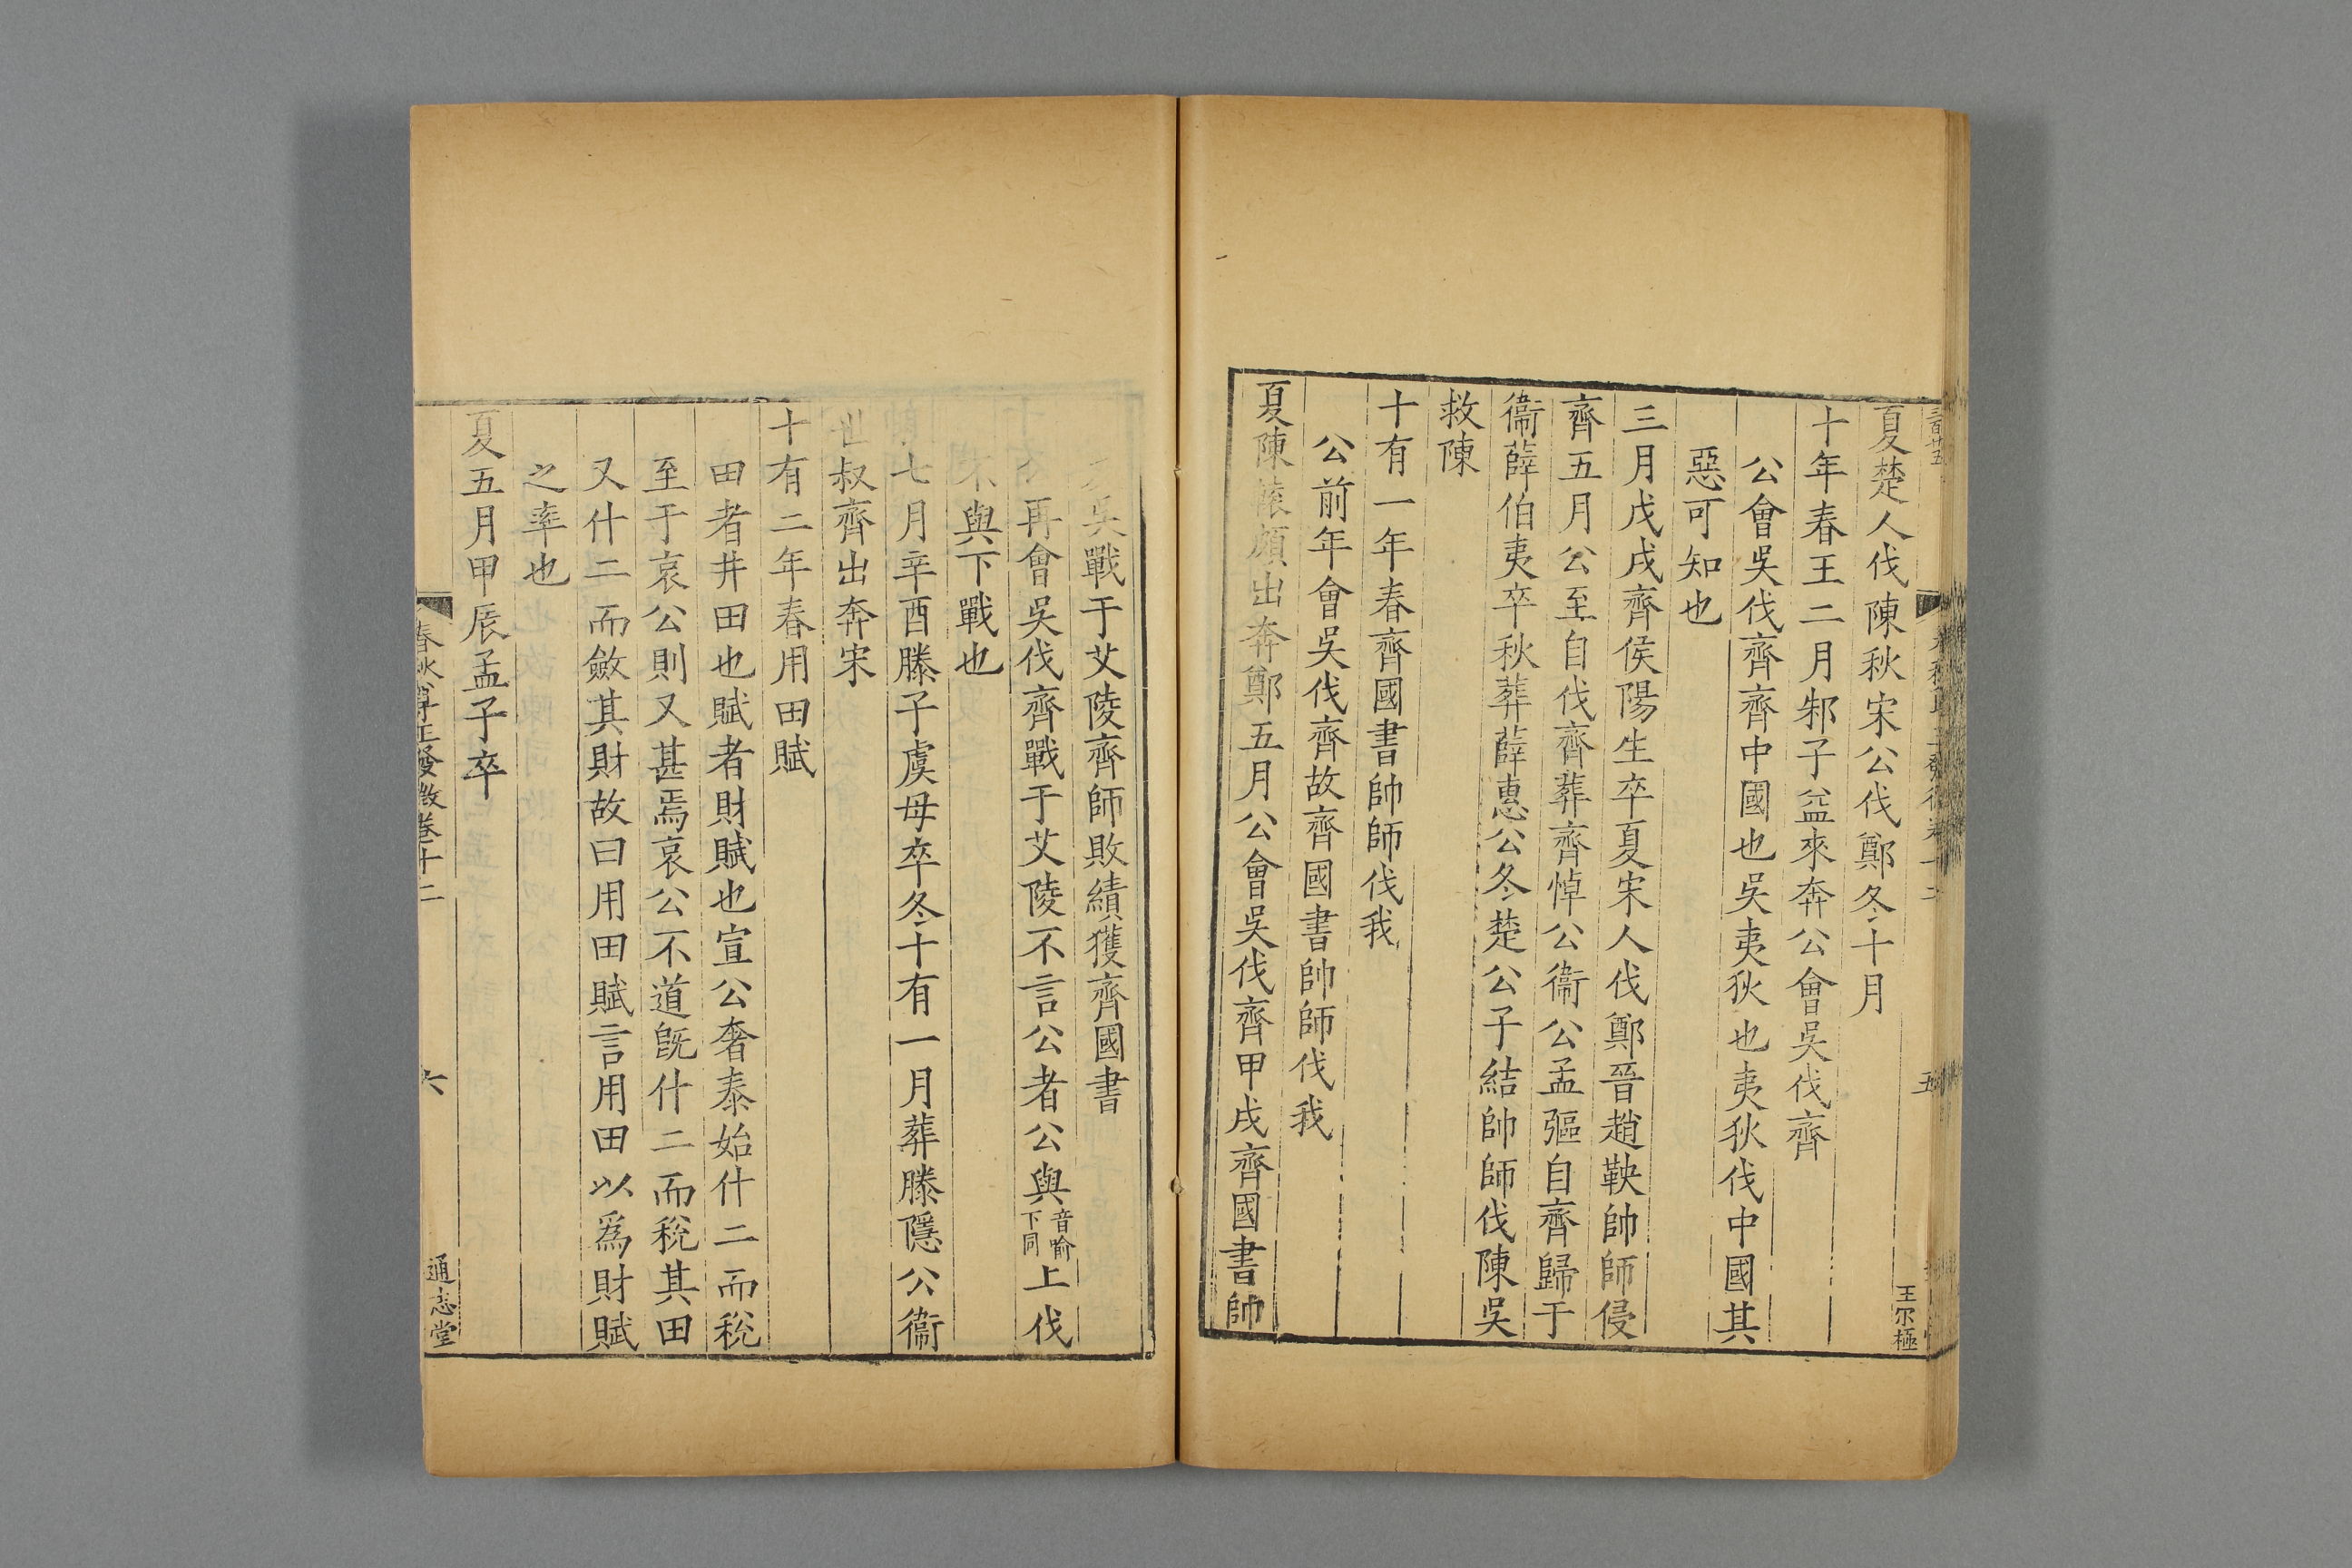 夏楚人伐陳秋宋公伐鄭冬十月
十年春王二月邾子益來奔公會吳伐齊
公會吳伐齊齊中國也吳夷狄也夷狄伐中國其
惡可知也
三月戊戌齊侯陽生卒夏宋人伐鄭晉趙鞅帥師侵
齊五月公至自伐齊葬齊悼公衞公孟彄自齊歸于
衞薛伯夷卒秋葬薛惠公冬楚公子結帥師伐陳吳
救陳
十有一年春齊國書帥師伐我
公前年會吳伐齊故齊國書帥師伐我
夏陳轅頗出奔鄭五月公會吳伐齊甲戌齊國書帥
王尔極
五
吳戰于艾陵齊師敗績獲齊國書
再會吳伐齊戰于艾陵不言公者公與音喻下同上伐
不與下戰也
七月辛酉滕子虞母卒冬十有一月葬滕隱公衞
世叔齊出奔宋
十有二年春用田賦
田者井田也賦者財賦也宣公奢泰始什二而稅
至于哀公則又甚焉哀公不道旣什二而稅其田
又什二而斂其財故曰用田賦言用田以爲財賦
之率也
夏五月甲辰孟子卒
春秋尊王發微卷十二
六
通志堂